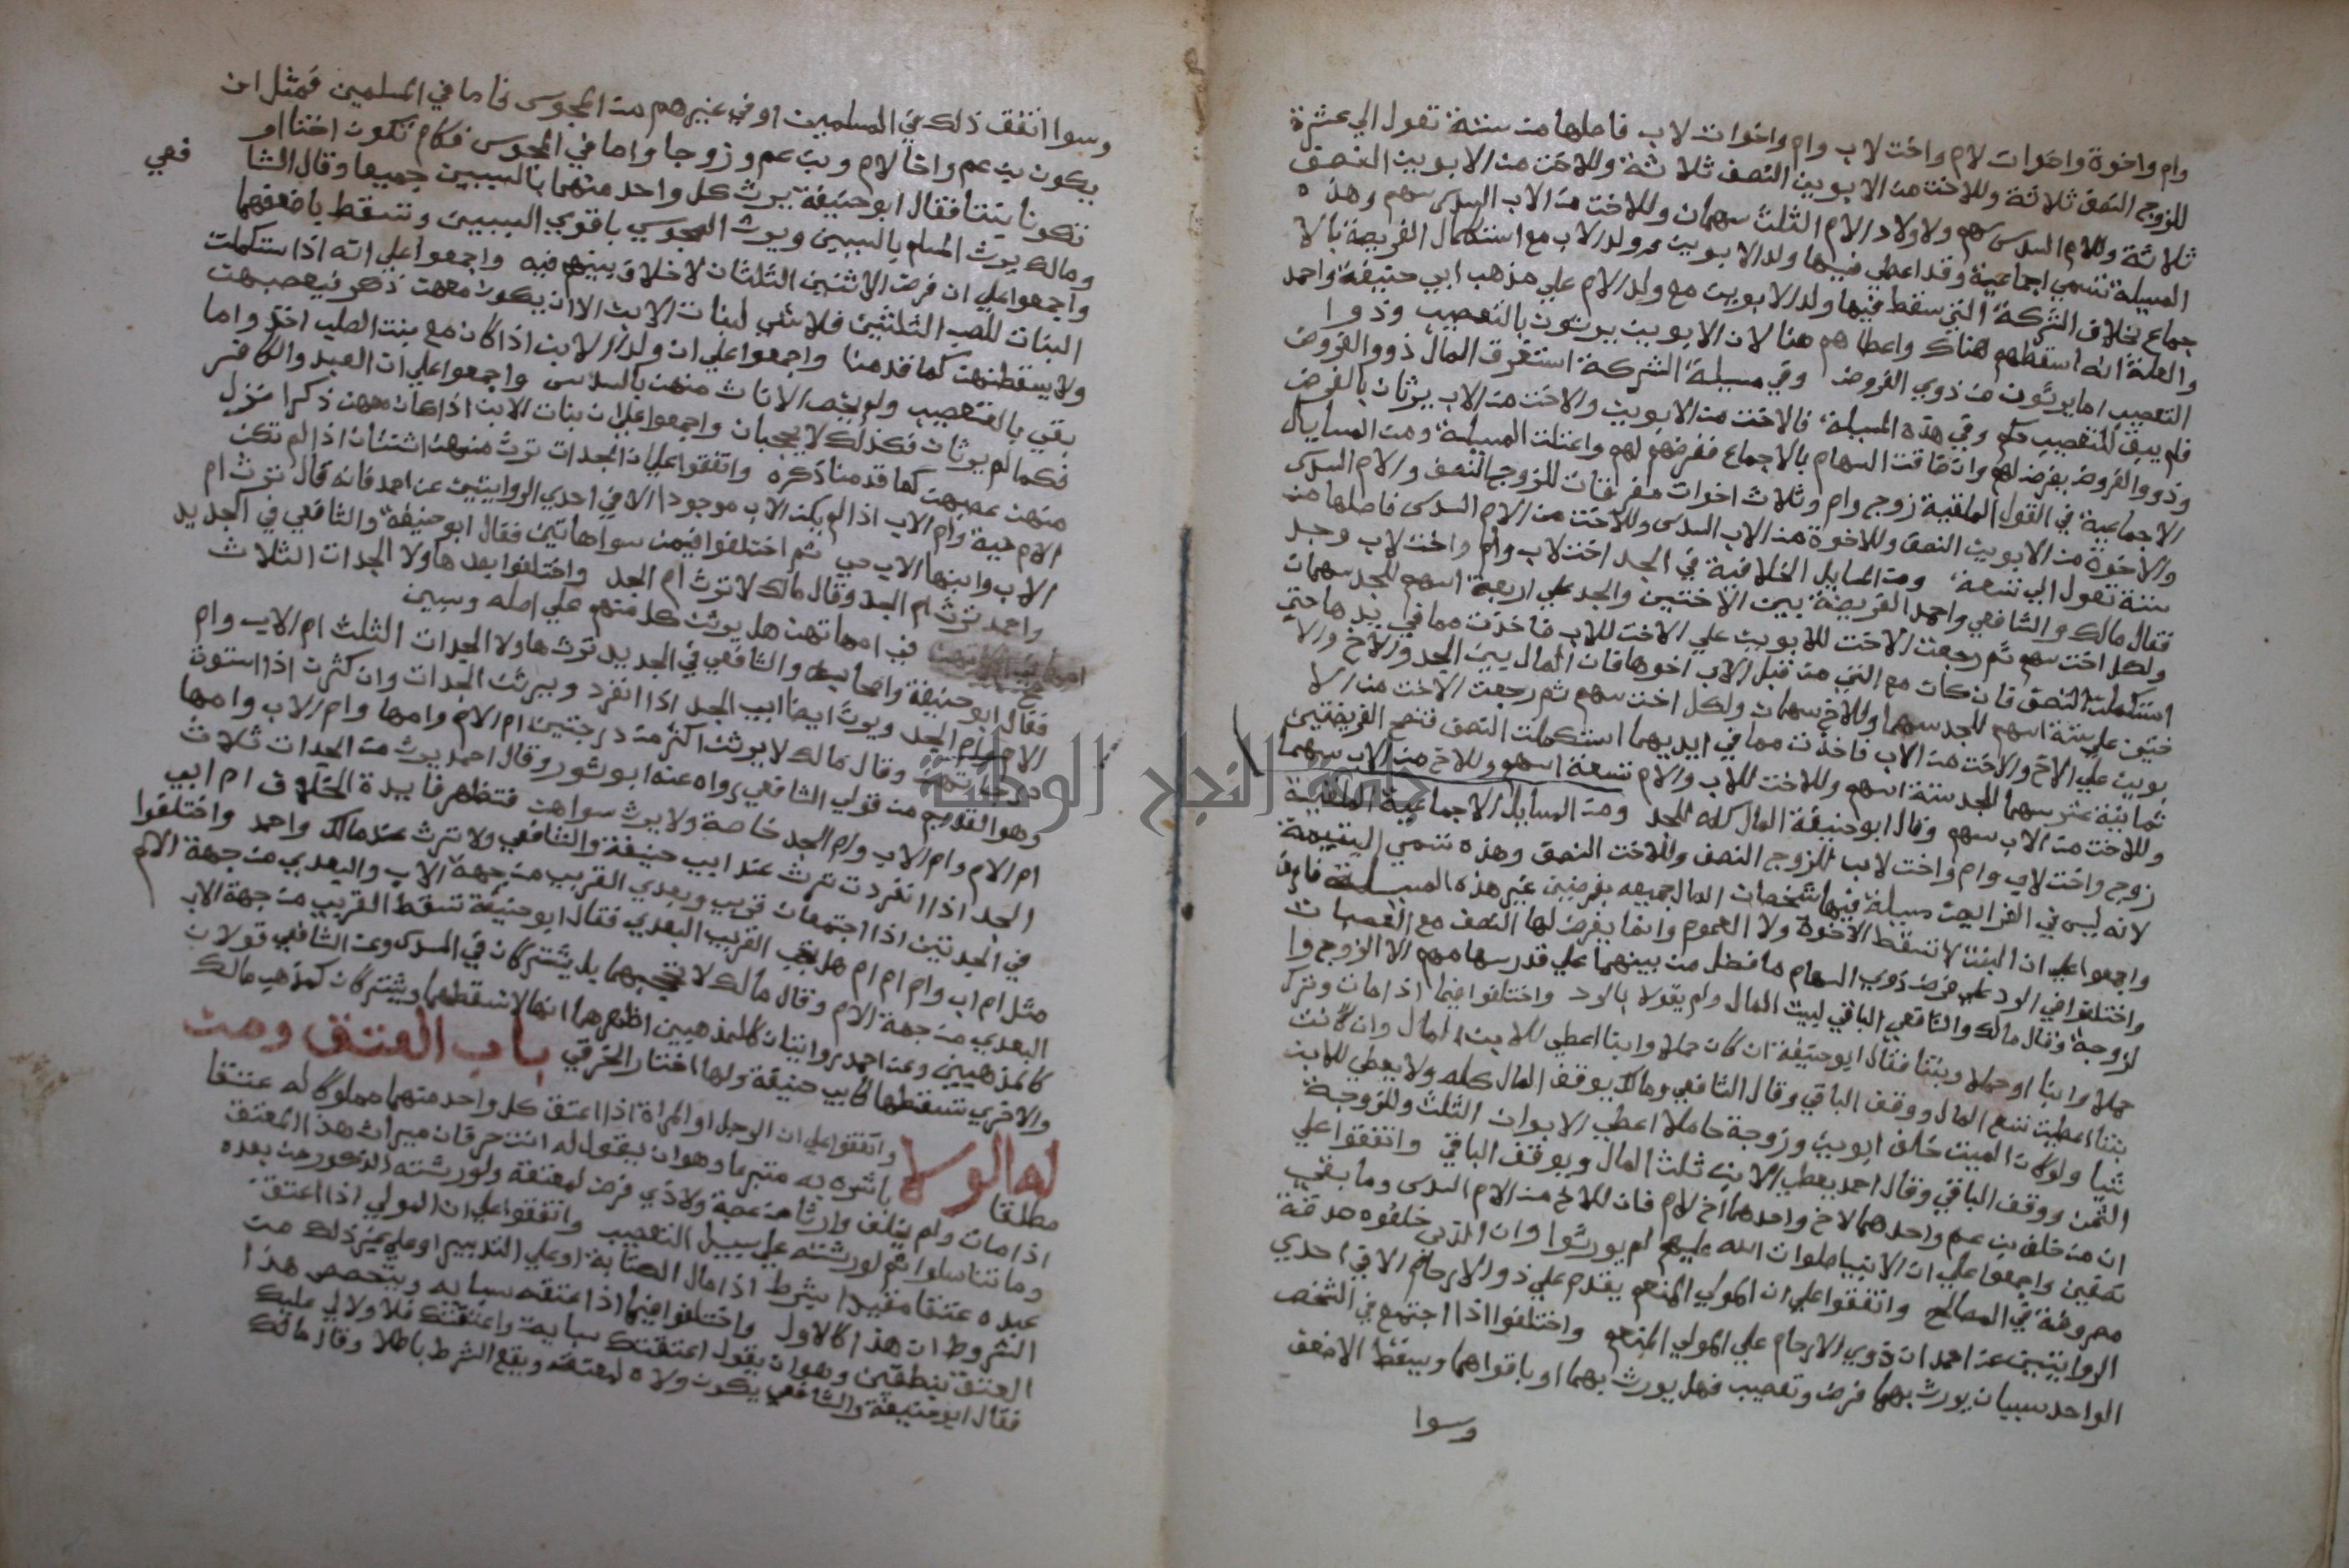 وام واخوة واخوات لام واخت لاب وام واخوات لاب فاصلها من ستة تعول الي عشرة
للزوج النصف ثلاثة وللاخت من الابوين النصف ثلاثة وللاخت من الابوين النصف
ثلاثة وللام السدس سهم ولاولاد الام الثلث سهمان وللاخت من الاب السدس سهم وهذه
المسيلة تسمي اجماعية وقد اعطي فيها ولد الابوين وولد الاب مع استكمال الفريضة بالا
جماع بخلاف الشركة التي سقط فيها ولد الابوين مع ولد الام علي مذهب ابي حنيفة واحمد
والعلة انه اسقطهم هناك واعطاهم هنا لان الابوين يرثون بالتعصيب وذوا
التعصيب اما يرثون من ذوي الفروض وفي مسيلة الشركة استغرق المال ذووالفروض
فلم يبق للتعصيب حكم وفي هذه المسيلة فالاخت من الابوين والاخت من الاب يرثان بالفرض
وذووالفروض يفرض لهم وان ضاقت السهام بالاجماع ففرض لهم واعتلت المسيلة ومن المسايل
الاجماعية في القول الملقبة زوج وام وثلاث اخوات مفرقات للزوج النصف وللام السدس
وللاخوة من الابوين النصف وللاخوة من الاب السدس وللاخت من الام السدس فاصلها من
ستة تعول الي تسعة ومن المسايل الخلافية في الجد اخت لاب وام واخت لاب وجد
فقال مالك والشافعي واحمد الفريضة بين الاختين والجد علي اربعة اسهم للجد سهمان
ولكل اخت سهم ثم رجعت الاخت للابوين علي الاخت للاب فاخذت مما في يدها حتي
استكملت النصف فان كان مع التي من قبل الاب اخوها فان المال بين الجد والاخ والا
ختين علي ستة اسهم للجد سهما وللاخ سهمان ولكل اخت سهم ثم رجعت الاخت من الا
بوين علي الاخ والاخت من الاب فاخذت مما في ايديهما استكملت النصف فتصح الفريضتين
ثمانية عشر سهما للجد ستة اسهم وللاخت للاب والام تسعة اسهم وللاخ من الاب سهما
وللاخت من الاب سهم وقال ابوحنيفة المال كله للجد ومن المسايل الاجماعية الملقبة
زوج واخت لاب وام واخت لاب للزوج النصف وللاخت النصف وهذه تسمي اليتيمة
لانه ليس في الفرايض مسيلة فيها شخصان المال جميعه بفرضين غير هذه المسيلة
واجمعوا علي ان البنت لا تسقط الاخوة ولا العموم وانما يفرض لها النصف مع العصبات
واختلفوا في الرد علي فرض ذوي السهام ما فضل من بينهما علي قدر سهامهم الا الزوج وا
لزوجة فقال مالك والشافعي الباقي لبيت المال ولم يقولا بالرد واختلفوا فيما اذا مات وترك
حملا وابنا او حملا وبنتا فقال ابوحنيفة ان كان حملا وابنا اعطي للابن المال وان كانت
بنتا اعطيت تسع المال ووقف الباقي وقال الشافعي ومالك يوقف المال كله ولا يعطي للابن
شيا ولو كان الميت خلف ابوين وزوجة حاملا اعطي الابوان الثلث وللزوجة
الثمن ووقف الباقي وقال احمد يعطي الابن ثلث المال ويوقف الباقي واتفقوا علي
ان من خلف بن عم واحدهما لاخ واحدهما اخ لام فان للاخ من الام السدس وما بقي
نصفين واجمعوا علي ان الانبيا صلوات الله عليهم لم يورثوا وان الذي خلفوه صدقة
مصروفة في المصالح واتفقوا علي ان المولي المنعم يقدم علي ذو الارحام الا في احدي
الروايتين عن احمد ان ذوي الارحام علي المولي المنعم واختلفوا اذا اجتمع في الشخص
الواحد سببان يورث بهما فرض وتعصيب فهل يورث بهما او باقواهما ويسقط الاضعف
وسوا
وسوا اتفق ذلك في المسلمين او في غيرهم من المجوس فاما في المسلمين فمثل ان
يكون بن عم واخا لام وبن عم وزوجا واما في المجوس فكام تكون اختا او
تكونا بنتا فقال ابوحنيفة يرث كل واحد منهما بالسببين جميعا وقال الشا
فعي
ومالك يرث المسلم بالسببين ويورث المجوسي باقوي السببين وتسقط باضعفهما
واجمعوا علي ان فرض الاثنتين الثلثان لا خلاف بينهم فيه واجمعوا علي انه اذا استكملت
البنات للصب الثلثين فلا شي لبنات الابن الا ان يكون معهن ذكر فيعصبهن
ولا يسقطنهن كما قدمنا واجمعوا علي ان ولد الابن اذا كان مع بنت الصلب اخذ واما
بقي بالتعصيب ولم يختص الاناث منهن بالسدس واجمعوا علي ان العبد والكافر
فكما لم يرثان فكذلك لا يحجبان واجمعوا علي ان بنات الابن اذا كان معهن ذكرا منزل
منهن عصبهن كما قدمنا ذكره واتفقوا علي ان الجدات ترث منهن اثنتان اذا لم تكن
الام حية وام الاب اذا لم يكن الاب موجودا الا في احدي الروايتين عن احمد فانه قال ترث ام
الاب وابنها الاب حي ثم اختلفوا فيمن سواهاتين فقال ابو حنيفة والشافعي في الجديد
واحمد ترث ام الجد وقال مالك لا ترث ام الجد واختلفوا بعد هاولا الجدات الثلاث
في امهاتهن هل يورث كل منهم علي اصله وسين
فقال ابوحنيفة واصحابه والشافعي في الجديد ترث هاولا الجدات الثلث ام الاب وام
الام وام الجد ويورث ايضا ابي الجد اذا انفرد ويرثن الجدات وان كثرن اذا استوة
درجاتهن وقال مالك لا يورث اكثر من درجتين ام الام وامها وام الاب وامها
وهو القديم من قولي الشافعي رواه عنه ابوثور وقال احمد يورث من الجدات ثلاث
ام الام وام الاب وام الجد خاصة ولا يورث سواهن فتظهر فايدة الخلاف ام ابي
الجد اذا انفردت ترث عند ابي حنيفة والشافعي ولا ترث عند مالك واحمد واختلفوا
في الجدتين اذا اجتمعان قربي وبعدي القريب من جهة الاب والبعدي من جهة الام
مثل ام اب وام ام ام هل تحجب القريب البعدي فقال ابوحنيفة تسقط القريب من جهة الاب
البعدي من جهة الام وقال مالك لا تحجبهما بل يشتركان في السدس وعن الشافعي قولان
كالمذهبين وعن احمد روايتان كالمذهبين اظهرها انها لا تسقطهما ويشتركان كمذهب مالك
والاخري تسقطها كابي حنيفة ولها اختار الخرقي باب العتق ومن
لها الولا واتفقوا علي ان الرجل او المراة اذا اعتق كل واحد منهما مملوكا له عتقا
مطلقا باشره به متبرعا وهوان يقول له انت حر فان ميراث هذا المعتق
اذا مات ولم يخلف وارثا من عصبة ولا ذي فرض لمعتقه ولورثته الذكور من بعده
وما تناسلوا ثم لورثته علي سبيل التعصيب واتفقوا علي ان المولي اذا اعتق
عبده عتقا مقيدا بشرط اذا مال الكتابة او علي التدبير او علي غير ذلك من
الشروط ان هذا كالاول واختلفوا فيما اذا اعتقه سايبه ويتحصص هذا
العتق بنطقين وهوان يقول اعتقتك سايبة واعتقتك فلا ولا لي عليك
فقال ابوحنيفة والشافعي يكون ولاه لمعتقه ويقع الشرط باطلا وقال مالك
جامعة النجاح الوطنية